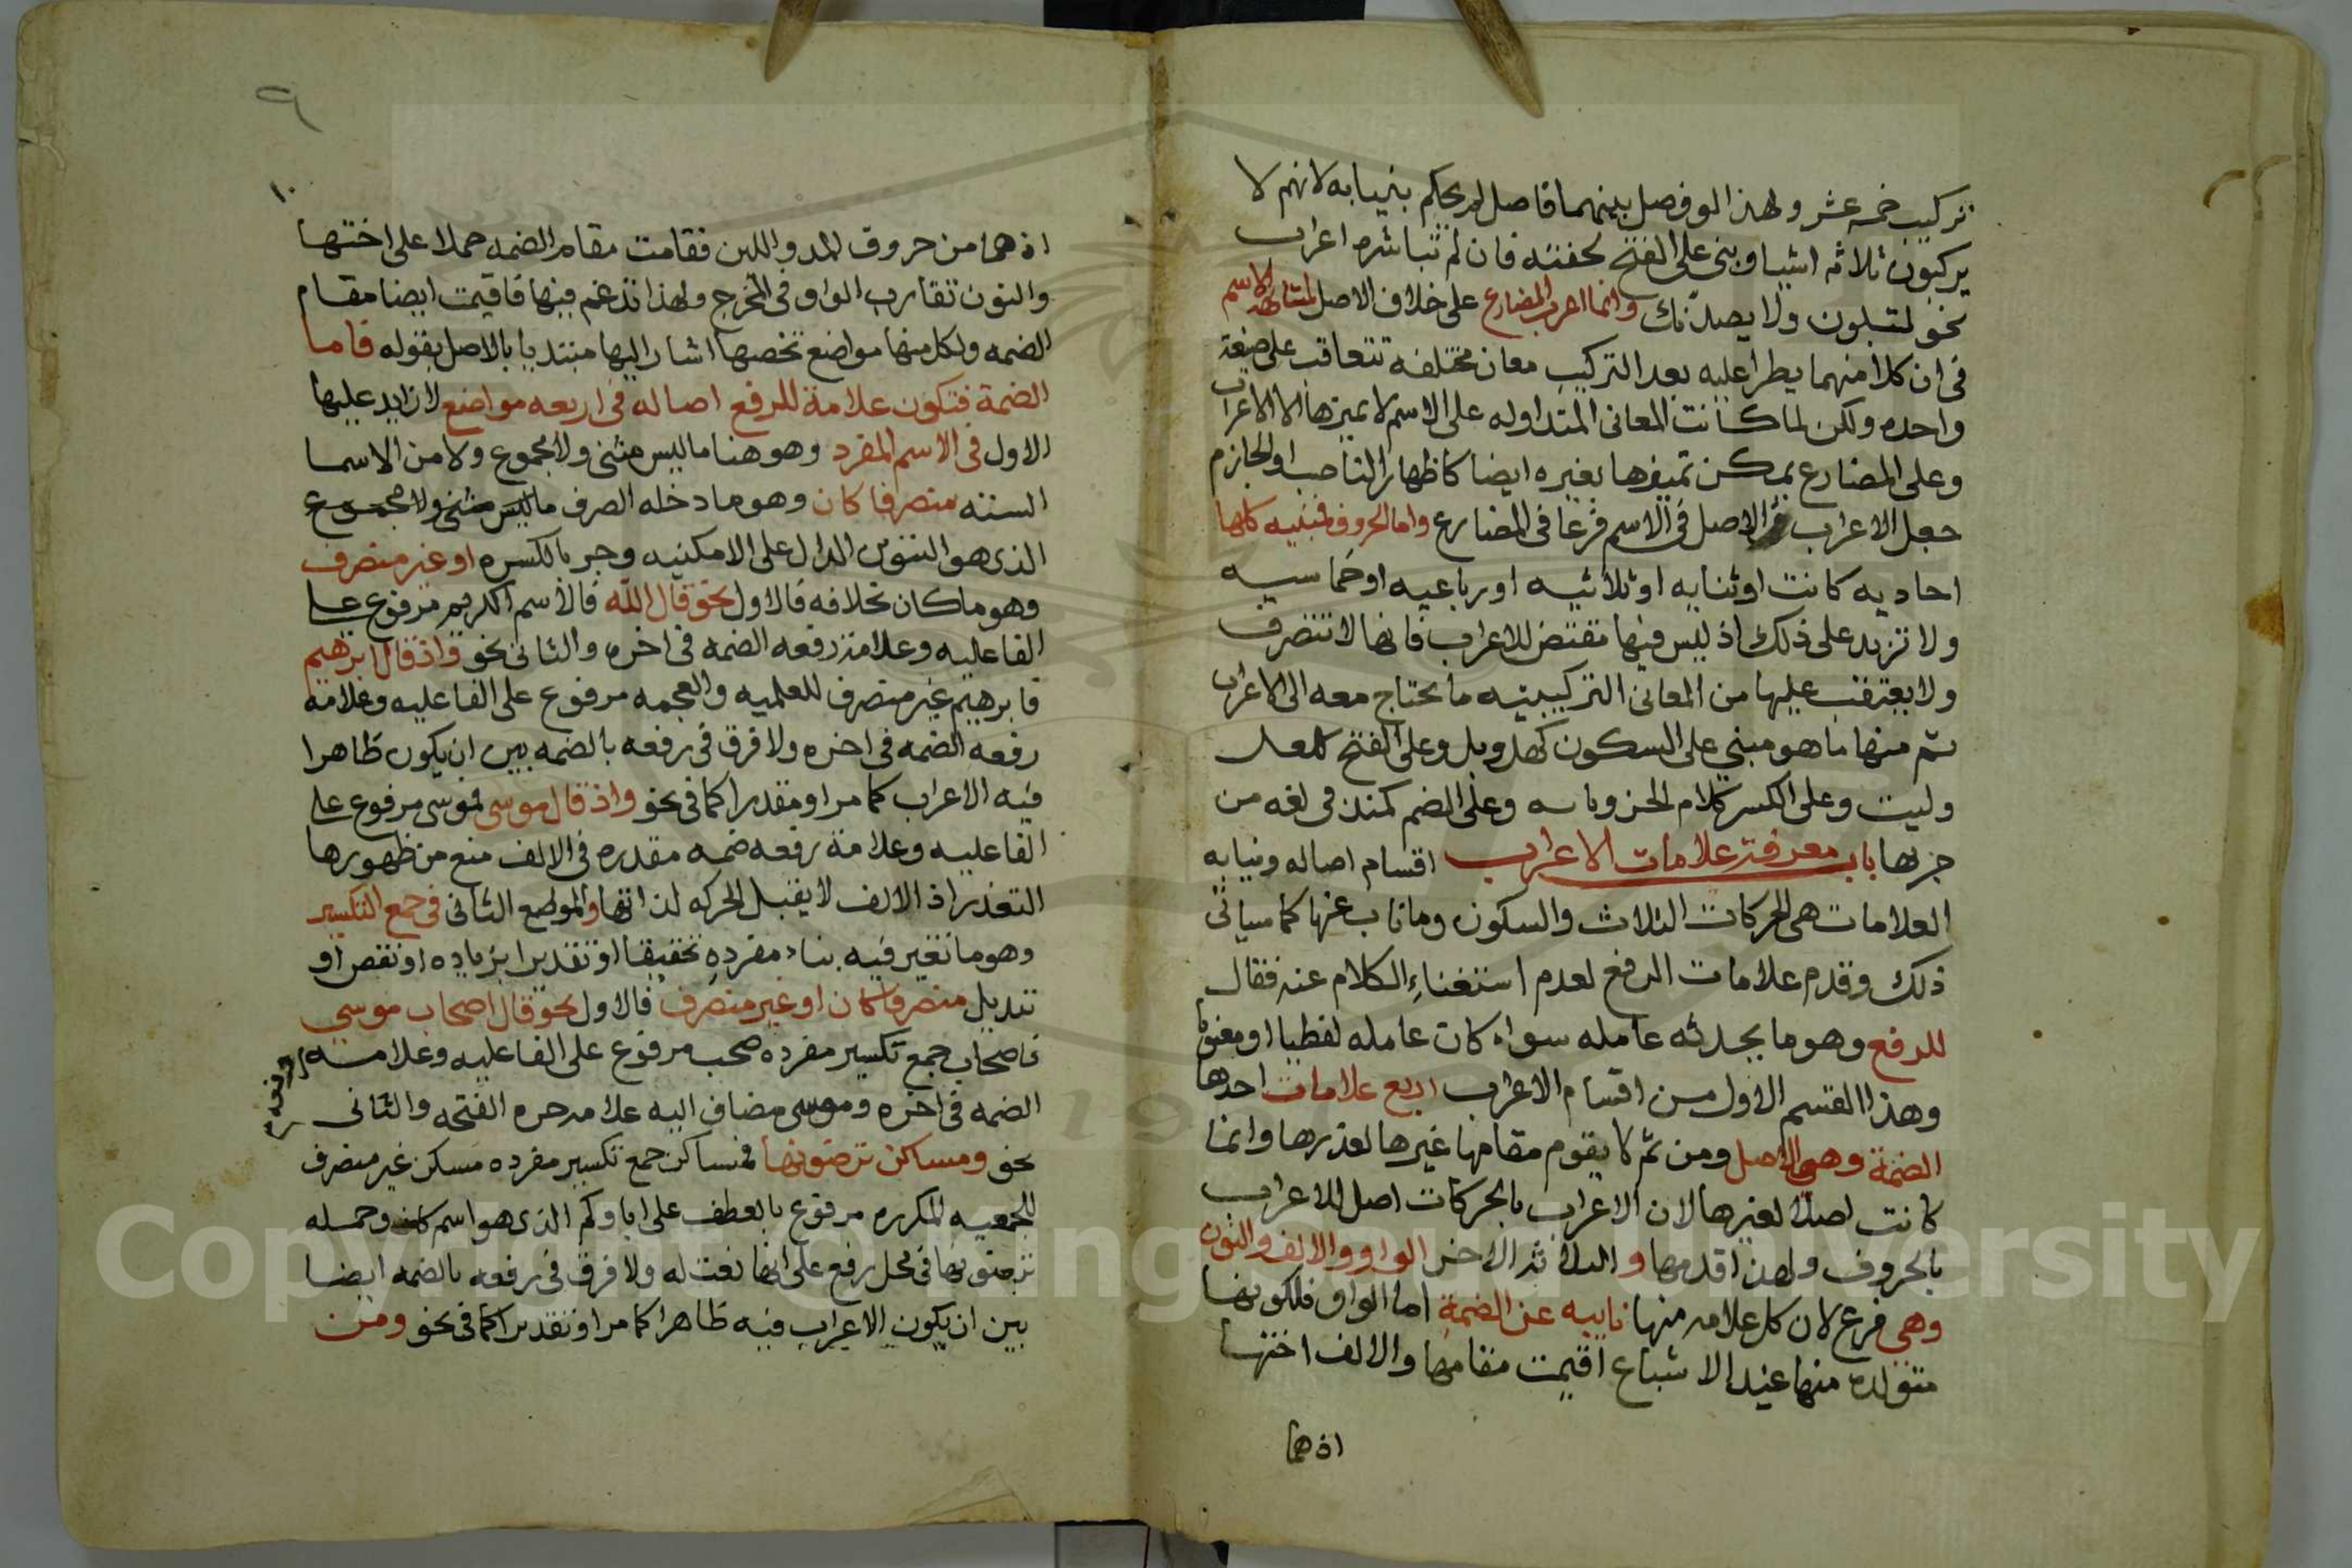 تركيب خمسه عشر ولهذا لو فصل بينهما فاصل لم يحكم ببنيابه لانهم لا
يركبون ثلاثه اشيا وبنى على الفتح لخفته فان لم تباشره اعراب
نحو لتبلون ولا يصدنك وانما اعرب المضارع على خلاف الاصل لمشابهته الاسم
فى ان كلا منهما يطرا عليه بعد التركيب معان مختلفه تتعاقب على صيغة
واحده ولكن لما كانت المعانى المتداوله على الاسم لا يميزها الا الاعراب
وعلى المضارع يمكن تمييزها بغيره ايضا كاظهار الناصب او الجازم
جعل الاعراب الاصل فى الاسم فرعا فى المضارع واما الحروف فمبنيه كلها
احاديه كانت او ثنايه او ثلاثيه او رباعيه او خماسيه
ولا تزيد على ذلك اذ ليس فيها مقتض للاعراب فانها لا تتصرف
ولا يعتقب عليها من المعانى التركيبيه ما يحتاج معه الى الاعراب
ثم منها ما هو مبني على السكون كهل وبل وعلى الفتح كلعل
وليت وعلى الكسر كلام الجر وبايه وعلى الضم كمنذ فى لغه من
جربها باب معرفة علامات الاعراب اقسام اصاله ونيابه
العلامات هى الحركات الثلاث والسكون وما ناب عنها كما سياتى
ذلك وقدم علامات الرفع لعدم استغناء الكلام عنه فقال
للرفع وهو ما يحدثه عامله سواء كان عامله لفظيا او معنويا
وهذا القسم الاول من اقسام الاعراب اربع علامات احدها
الضمة وهى الاصل ومن ثم لا يقوم مقامها غيرها لعذرها وانما
كانت اصلا لغيرها لان الاعراب بالحركات اصل للاعراب
بالحروف ولهذا قدمها و الثلاثة الاخر الواو والالف والنون
وهى فرع لان كل علامه منها نايبه عن الضمة اما الواو فلكونها
متولده منها عند الاشباع اقيمت مقامها والالف اختها
اذ هما
٩
١٠
اذ هما من حروف المد واللين فقامت مقام الضمه حملا على اختها
والنون تقارب الواو فى المخرج ولهذا تدغم فيها فاقيمت ايضا مقام
الضمه ولكل منها مواضع تخصها اشار اليها مبتديا بالاصل بقوله فاما
الضمة فتكون علامة للرفع اصاله فى اربعه مواضع لا زايد عليها
الاول فى الاسم المفرد وهو هنا ما ليس مثنى ولا مجموع ولا من الاسما
الستة منصرفا كان وهو ما دخله الصرف ما ليس مثنى ولا مجموع
الذى هو التنوين الدال على الامكنيه وجر بالكسره او غير منصرف
وهو ما كان بخلافه فالاول نحو قال الله فالاسم الكريم مرفوع على
الفاعليه وعلامة رفعه الضمه فى اخره والثانى نحو واذ قال ابرهيم
فابرهيم غير منصرف للعلميه والعجمه مرفوع على الفاعليه وعلامه
رفعه الضمه فى اخره ولا فرق فى رفعه بالضمه بين ان يكون ظاهرا
فيه الاعراب كما مر او مقدرا كما فى نحو واذ قال موسى فموسى مرفوع على
الفاعليه وعلامة رفعه ضمه مقدره فى الالف منع من ظهورها
التعذر اذ الالف لا يقبل الحركه لذاتها والموضع الثانى فى جمع التكسير
وهو ما تغير فيه بناء مفرده تحقيقا او تقديرا بزياده او نقص او
تبديل منصرفا كان او غير منصرف فالاول نحو قال اصحاب موسى
فاصحاب جمع تكسير مفرده صحب مرفوع على الفاعليه وعلامه
رفعه
الضمه فى اخره وموسى مضاف اليه علامه جره الفتحه والثانى
نحو ومساكن ترضونها فمساكن جمع تكسير مفرده مسكن غير منصرف
للجمعيه المكرره مرفوع بالعطف على اباوكم الذى هو اسم كان وجمله
ترضونها فى محل رفع على انها نعت له ولا فرق فى رفعه بالضمه ايضا
بين ان يكون الاعراب فيه ظاهرا كما مر او تقديرا كما فى نحو ومن
Copyright © King Saud University